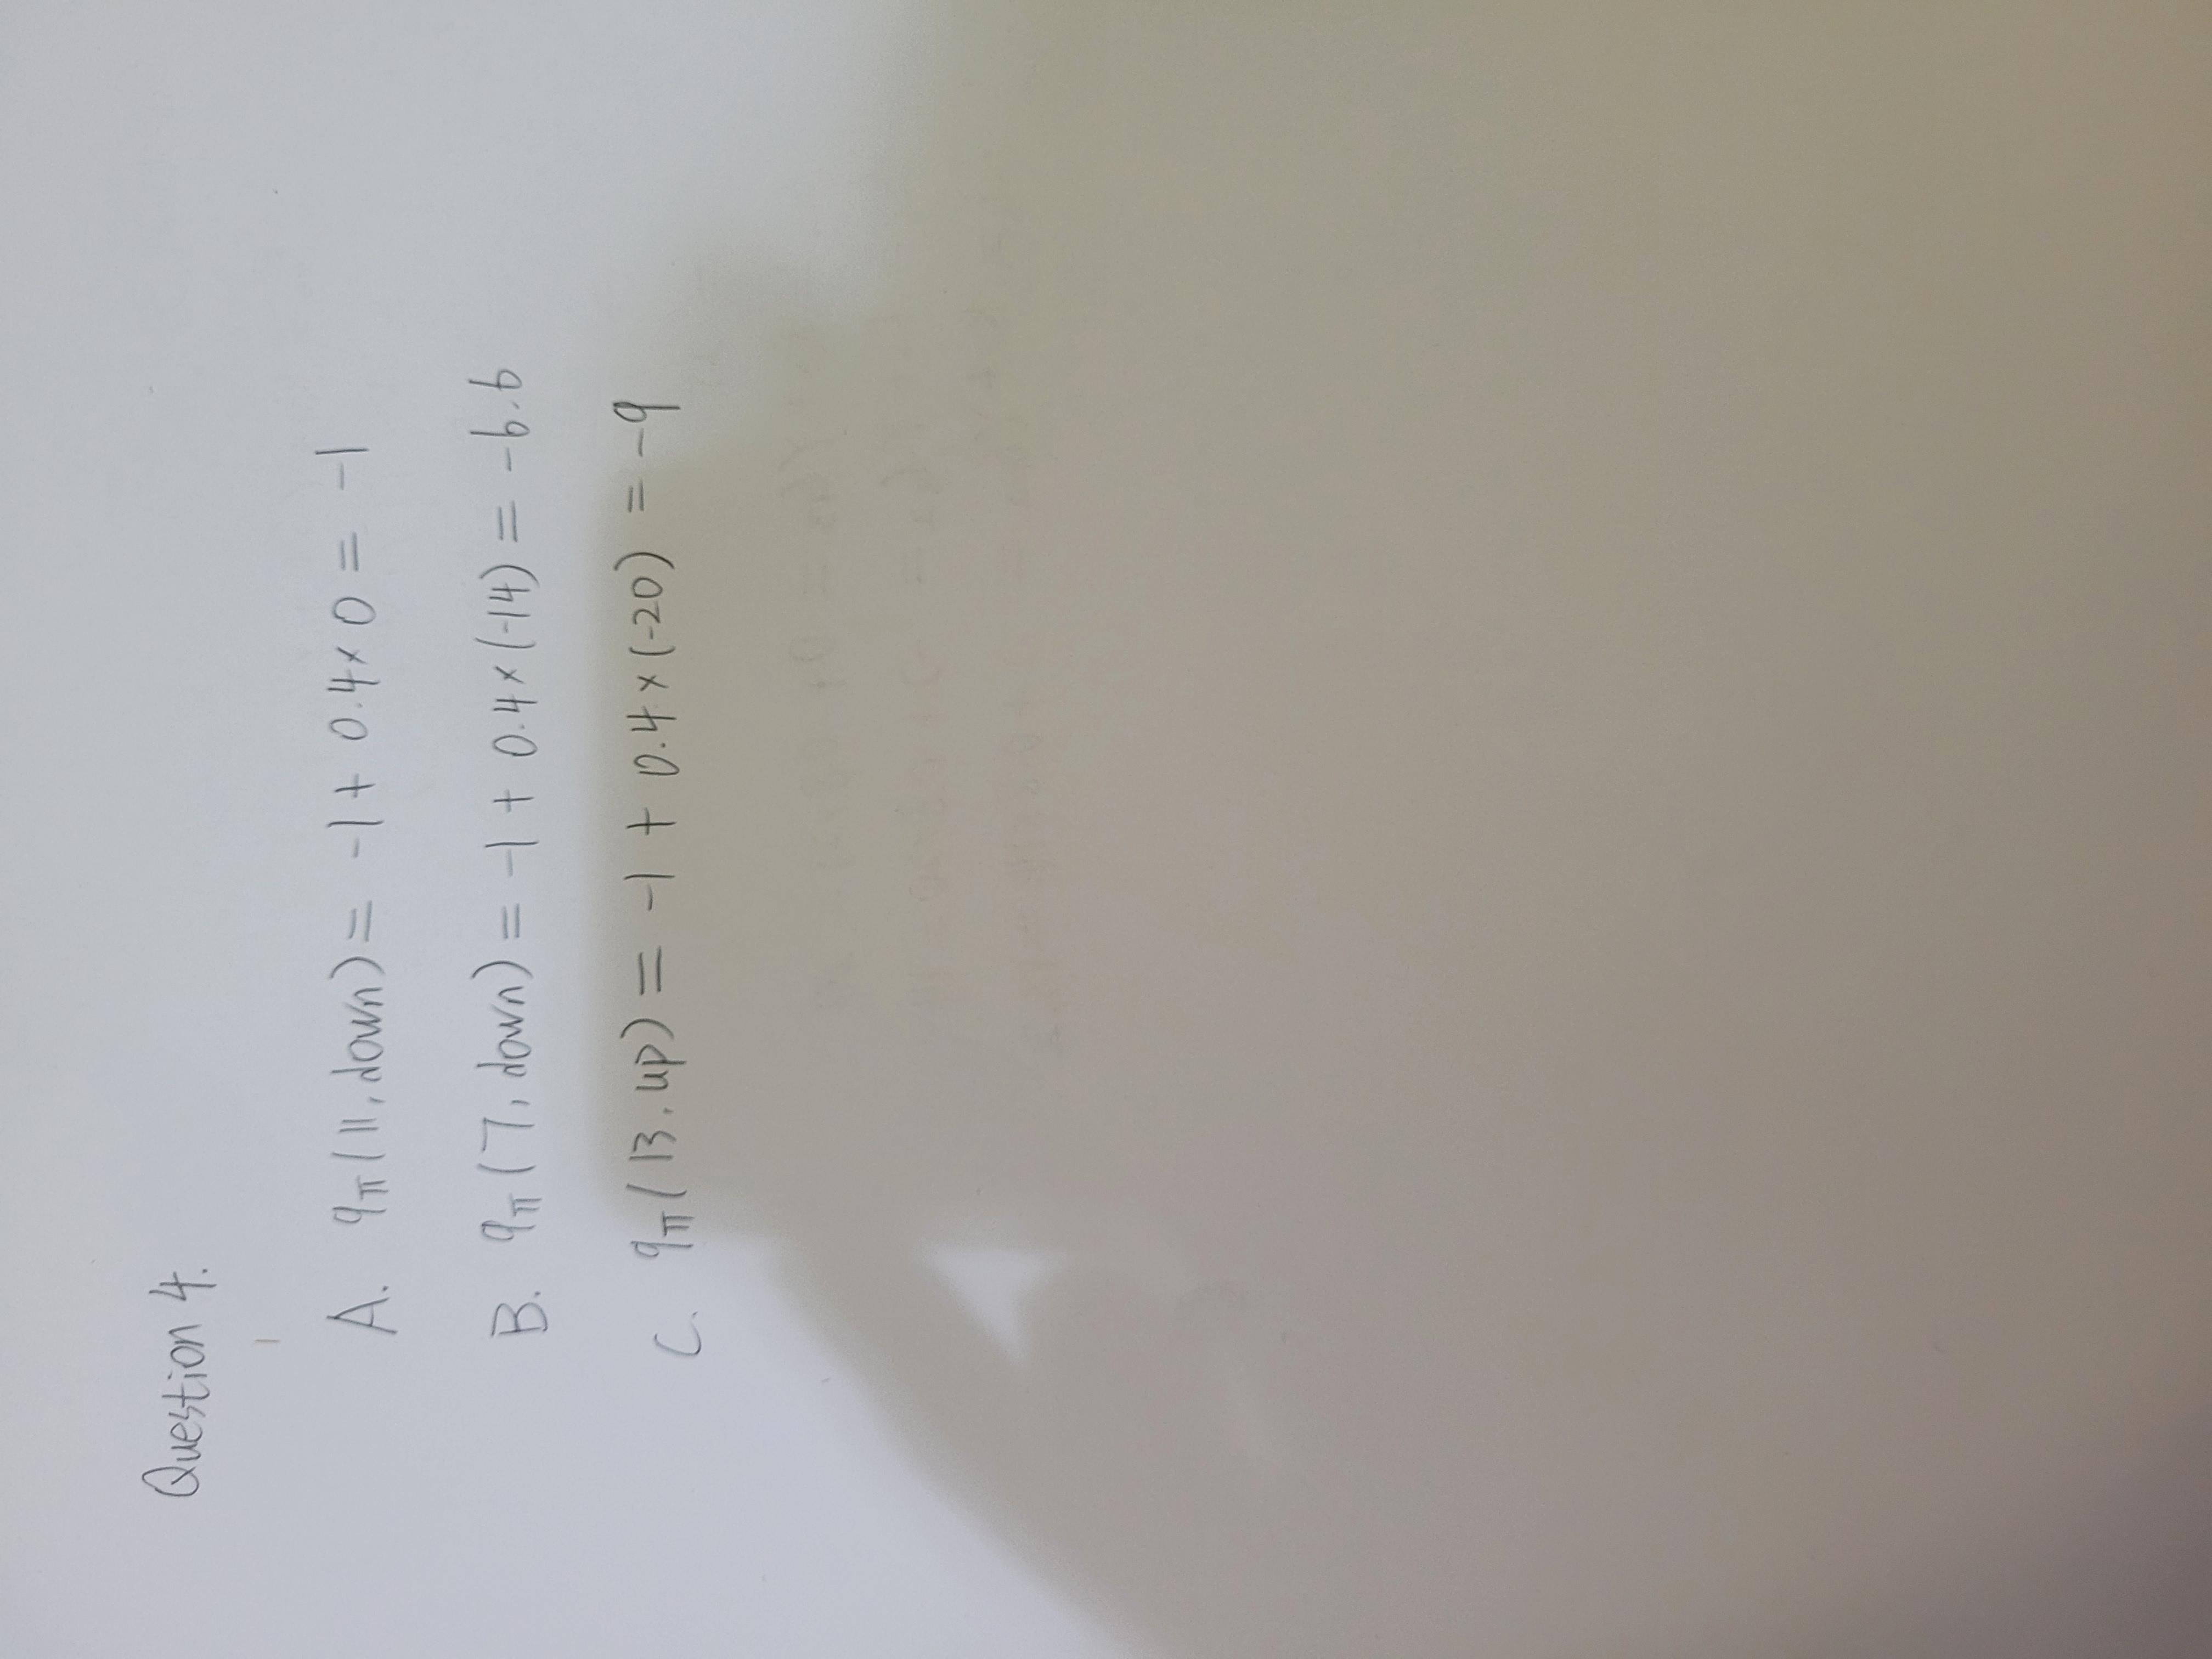 Question 4.
A. qπ(11, down) = -1 + 0.4 × 0 = -1
B. qπ(7, down) = -1 + 0.4 × (-14) = -6.6
C. qπ(13. up) = -1 + 0.4 × (-20) = -9